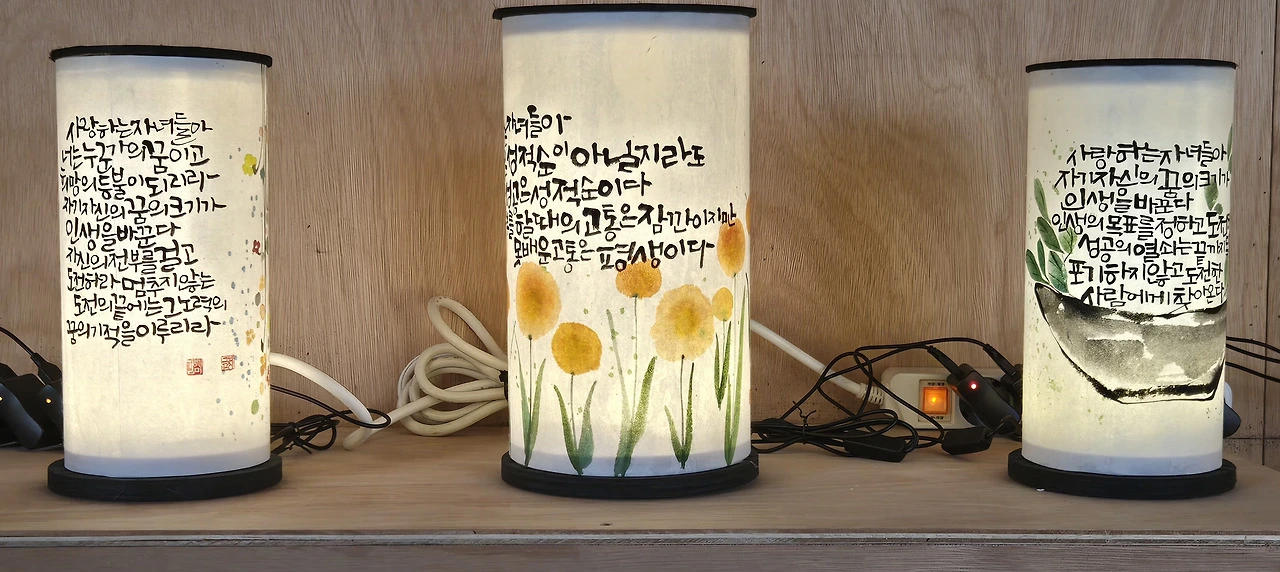 사랑하는자녀들아
너는누군가의꿈이고
희망의등불이되리라
자기자신의꿈의크기가
인생을바꾼다
자신의전부를걸고
도전하라 멈추지않는
도전의끝에는그노력의
꿈의기적을이루리라
자녀들아
성적순이아닐지라도
성공은성적순이다
할때의고통은잠깐이지만
못배운고통은평생이다
사랑하는자녀들아
자기자신의꿈의크기가
인생을바꾼다
인생의목표를정하고도전
성공의열쇠는끝까지
포기하지않고도전한
사람에게찾아온다